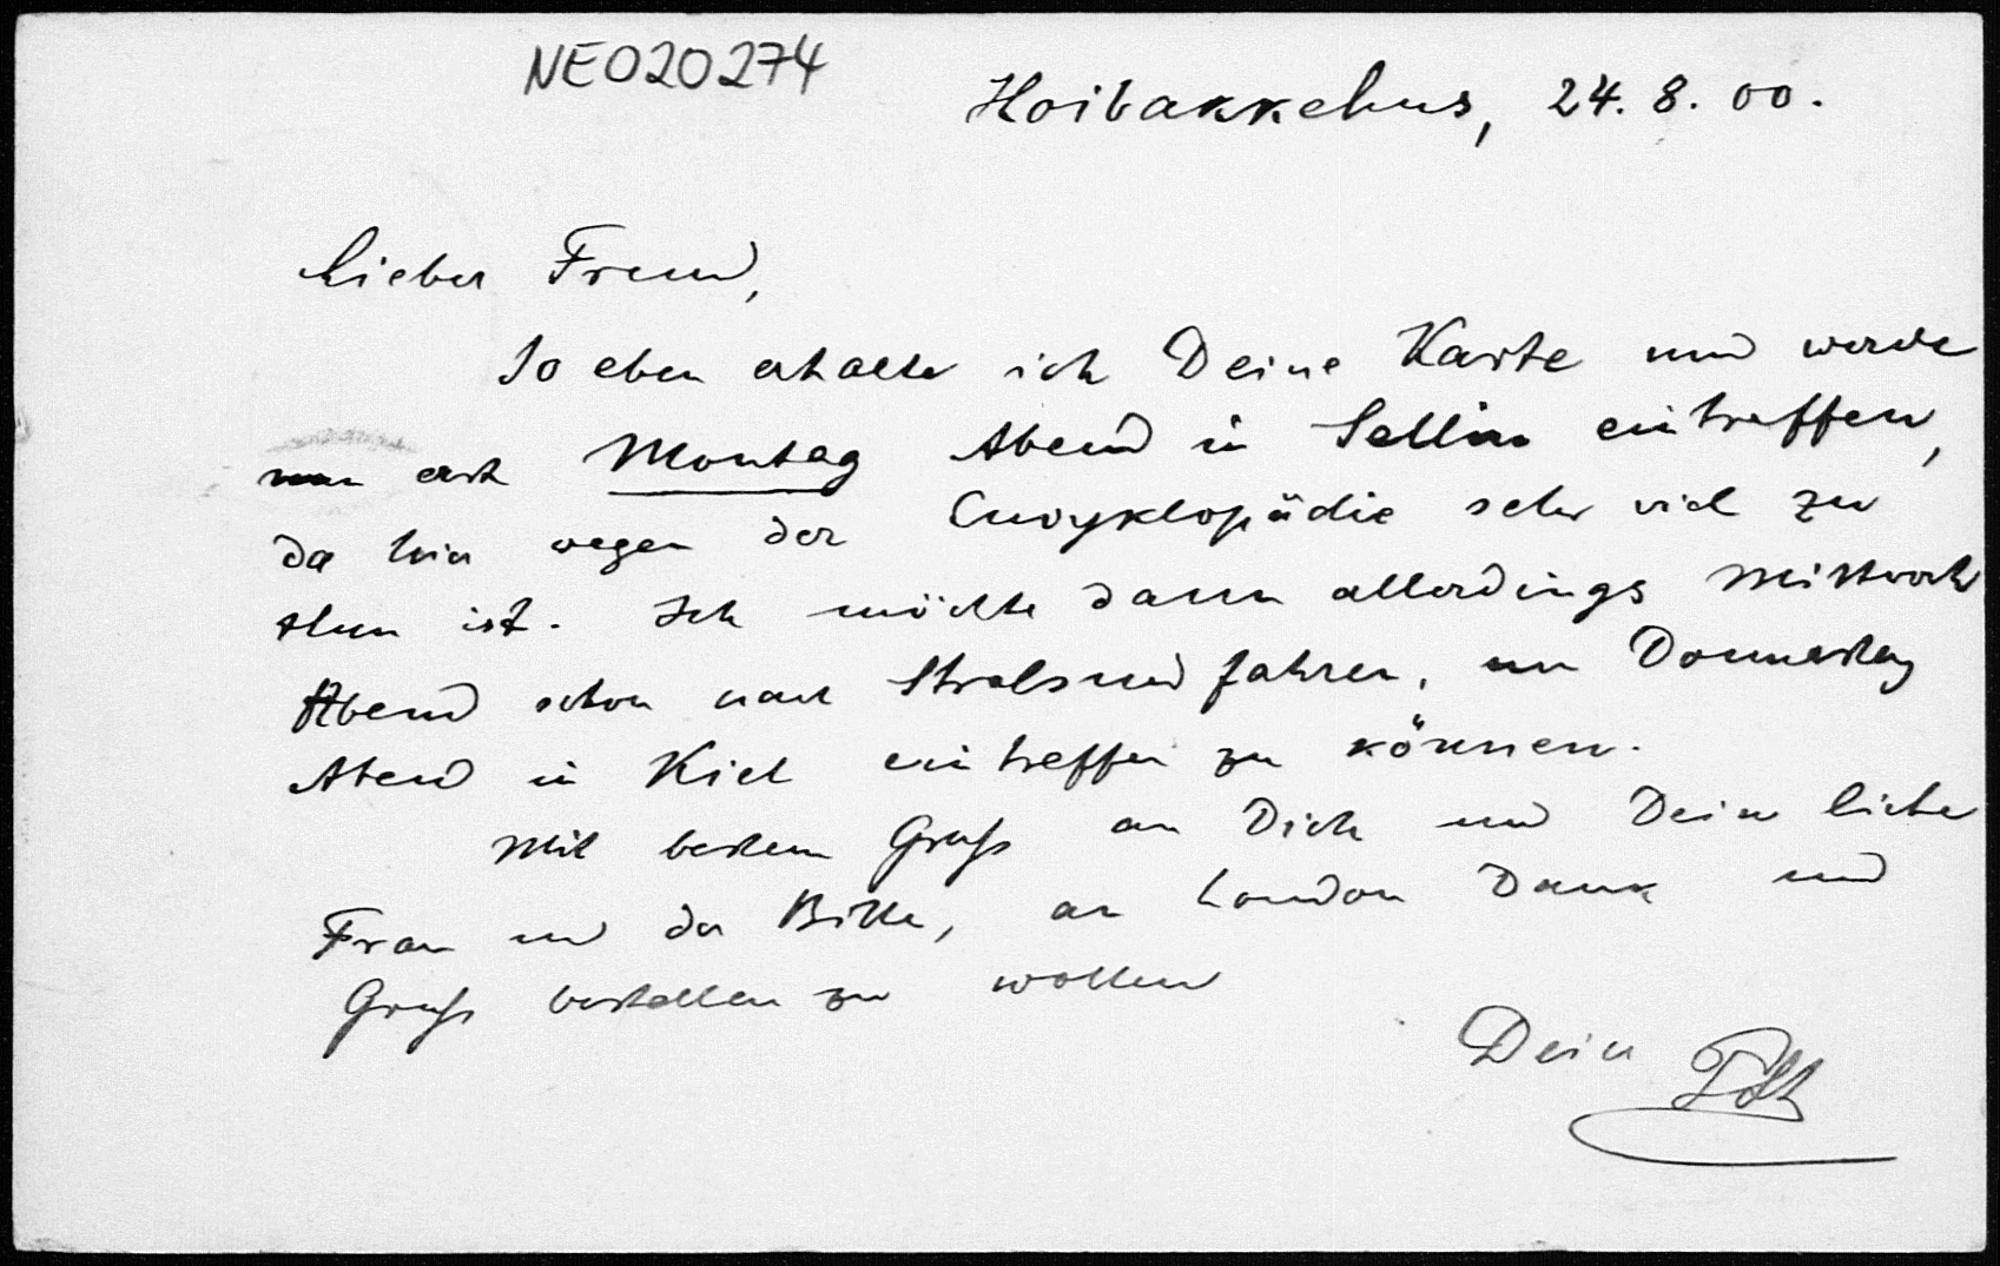 NE020274
Hoibakkehus, 24. 8. 00.
Lieber Freund,
So eben erhalte ich Deine Karte und werde
nun erst Montag Abend in Sellin eintreffen,
da hier wegen der Encyklopädie sehr viel zu
thun ist. Ich möchte dann allerdings Mittwoch
Abend schon nach Stralsund fahren, um Donnerstag
Abend in Kiel eintreffen zu können.
Mit bestem Gruß an Dich und Deine liebe
Frau und der Bitte, an London Dank und
Gruß bestellen zu wollen
Dein